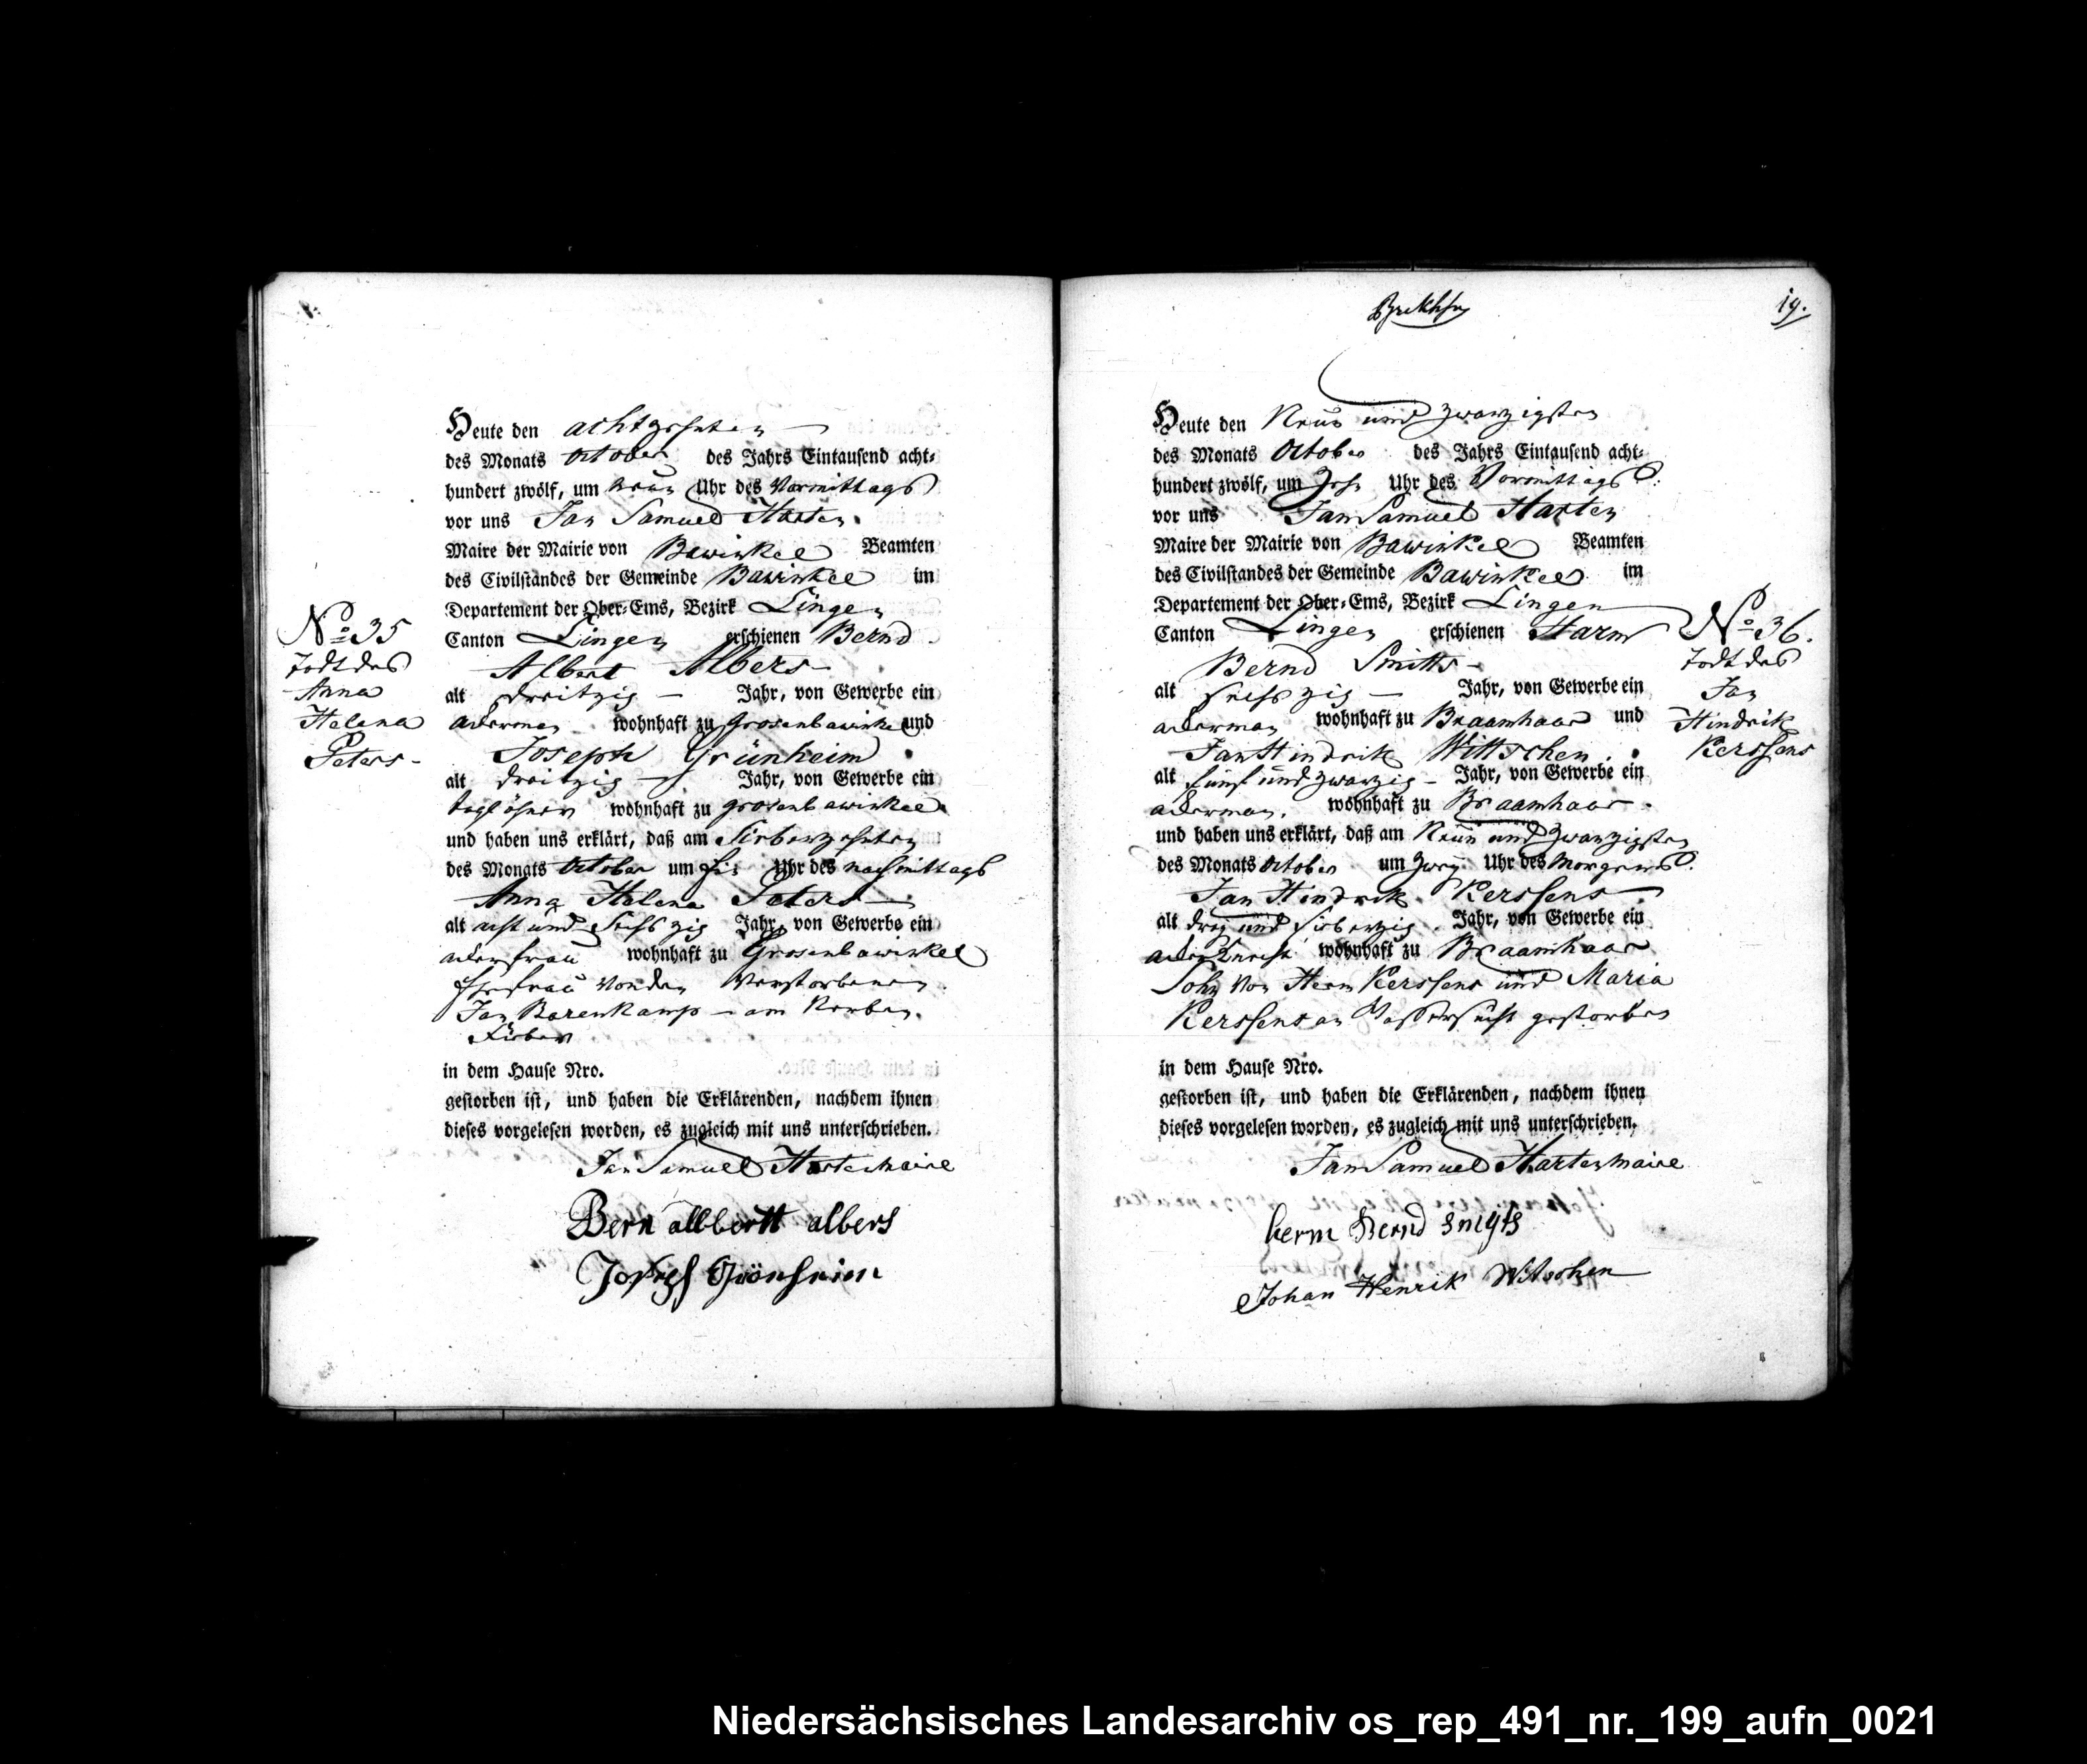 No 35
Todt des
Anna
Helena
Peters -
Heute den achtzehnten
des Monats October des Jahrs Eintausend acht=
hundert zwölf, um neun Uhr des Vormittags
vor uns Jan Samuel Harten
Maire der Mairie von Bawinkel Beamten
des Civilstandes der Gemeinde Bawinkel im
Departement der Ober=Ems, Bezirk Lingen
Canton Lingen erschienen Bernd
Albert Albers
alt dreitzig Jahr, von Gewerbe ein
ackerman wohnhaft zu Grosenbawinkel und
Joseph Grünheim
alt dreitzig Jahr, von Gewerbe ein
taglöhner wohnhaft zu grosenbawinkel
und haben uns erklärt, daß am Siebenzehnten
des Monats October um Uhr des nachmittags
Anna Helena Peters
alt acht und Sechszig Jahr, von Gewerbe ein
ackersfrau wohnhaft zu Grosenbawinkel
Ehefrau von den Verstorbenen
Jan Barenkamp - am
Fieber
in dem Hause Nro.
gestorben ist, und haben die Erklärenden, nachdem ihnen
dieses vorgelesen worden, es zugleich mit uns unterschrieben.
Jan Samuel Harten Maire
Bern allbertt albers
Joseph Grönheim
19.
Heute den Neun und zwanzigsten
des Monats October des Jahrs Eintausend acht=
hundert zwölf, um Zehn Uhr des Vormittags
vor uns Jan Samuel Harten
Maire der Mairie von Bawinkel Beamten
des Civilstandes der Gemeinde Bawinkel im
Departement der Ober=Ems, Bezirk Lingen
Canton Lingen erschienen Harm
Bernd Smitts -
alt sechszig Jahr, von Gewerbe ein
ackerman wohnhaft zu Braamhaar und
Jan Hindrik Wittschen
alt fünf und zwanzig Jahr, von Gewerbe ein
ackerman, wohnhaft zu Braamhaar
und haben uns erklärt, daß am Neun und zwanzigsten
des Monats October um zwey Uhr des Morgens
Jan Hindrik Kerssens
alt drey und siebenzig Jahr, von Gewerbe ein
ackerknecht wohnhaft zu Braamhaar
Sohn von Herm Kerssens und Maria
Kerssens an Wassersucht gestorben
in dem Hause Nro.
gestorben ist, und haben die Erklärenden, nachdem ihnen
dieses vorgelesen worden, es zugleich mit uns unterschrieben.
Jan Samuel Harten Maire
herm Bernd smits
Johan Henrik Witschen
No 36.
Todt des
Jan
Hindrik
Kerssens
Niedersächsisches Landesarchiv os_rep_491_nr._199_aufn_0021